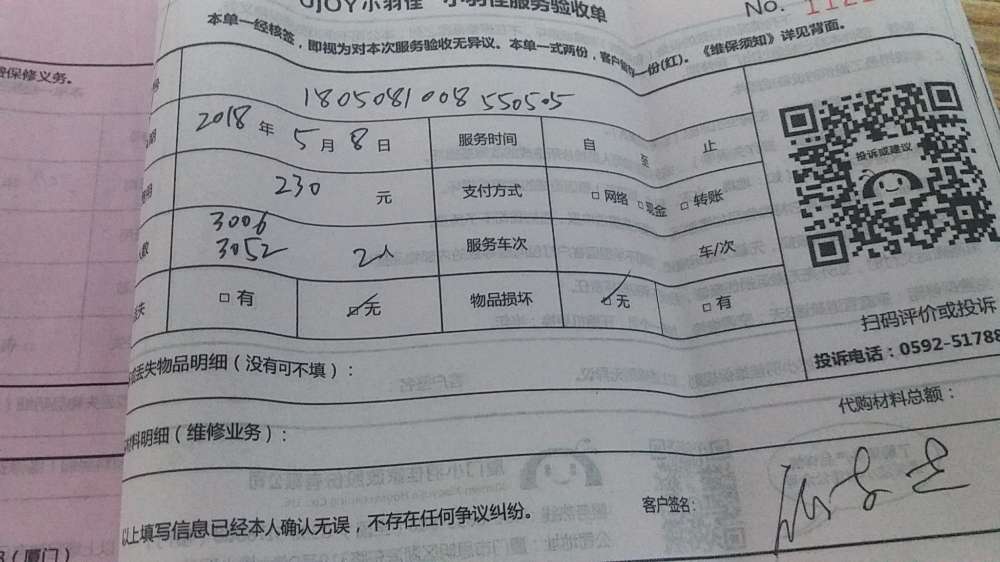 UJOY小羽佳 小羽佳服务验收单
No. 1121
本单一经核签，即视为对本次服务验收无异议。本单一式两份，客户留存一份(红)。《维保须知》详见背面。
费保修义务。
号 180508100855050​5
期 2018年5月8日 服务时间 自 至 止
230 元 支付方式 □网络 □现金 □转账
人数 3006 3052 2人 服务车次 车/次
失 □有 ☑无 物品损坏 ☑无 □有
投诉或建议
扫码评价或投诉
投诉电话：0592-51788
丢失物品明细（没有可不填）：
代购材料总额：
材料明细（维修业务）：
客户签名：
以上填写信息已经本人确认无误，不存在任何争议纠纷。
（厦门）